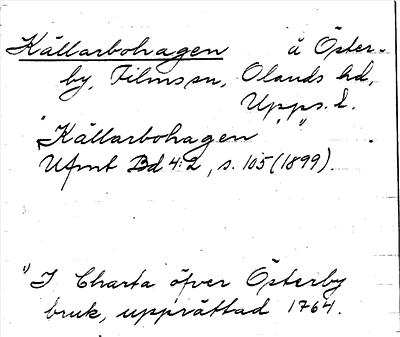 Källarbohagen å Öster-
by, Films sn, Olands hd,
Upps. l.
"Källarbohagen¹⁾"
Ufmt Bd 4:2, s. 105 (1899).
¹⁾ I Charta öfver Österby
bruk, upprättad 1764.